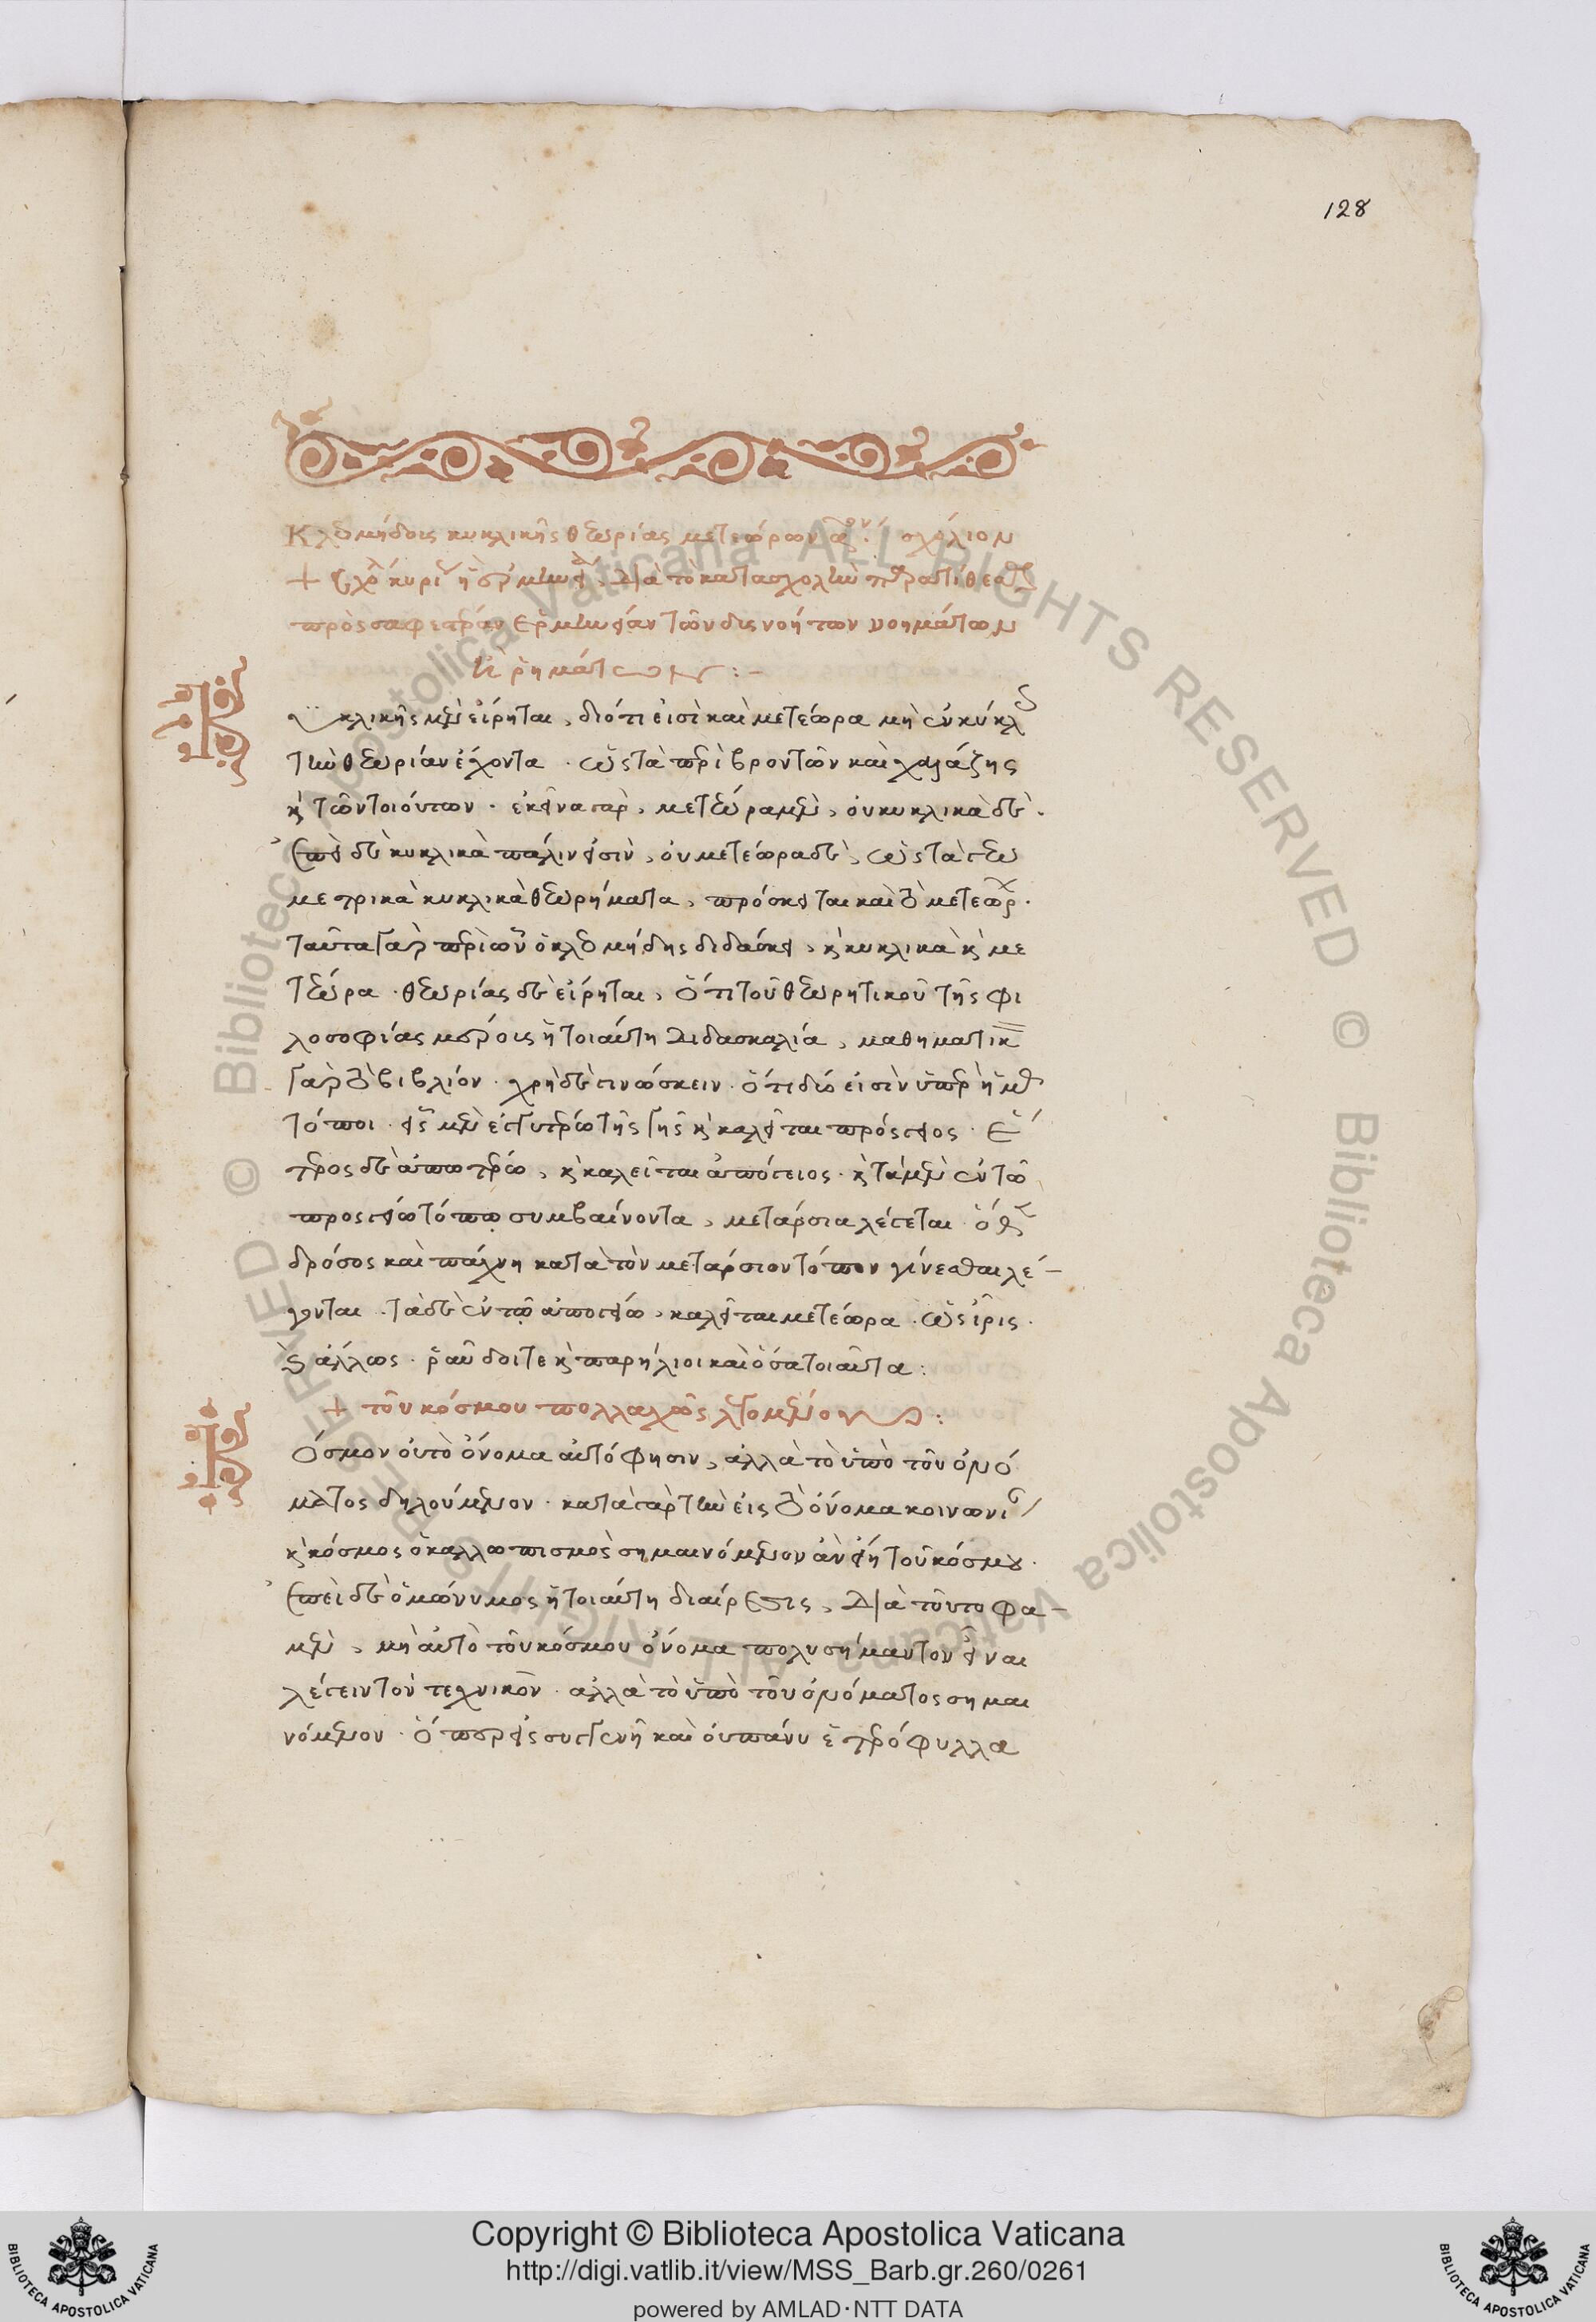 128
Κλεομήδους κυκλικῆς θεωρίας μετεώρων σχόλιον
πρὸς σαφεστέραν ἑρμηνείαν τῶν δυσνοήτων νοημάτων
καὶ ῥημάτων :-
Κυκλικῆς μὲν εἴρηται, διότι εἰσὶ καὶ μετέωρα μὴ ἐν κύκλῳ
τὴν θεωρίαν ἔχοντα · ὡς τὰ περὶ βροντῶν καὶ χαλάζης
καὶ τῶν τοιούτων · ἐκεῖνα γὰρ, μετέωρα μὲν, οὐ κυκλικὰ δέ ·
ἐπεὶ δὲ κυκλικὰ πάλιν εἰσὶν, οὐ μετέωρα δὲ, ὡς τὰ γεω
μετρικὰ κυκλικὰ θεωρήματα, πρόσκειται καὶ τὸ μετεώρων ·
ταῦτα γὰρ περὶ ὧν ὁ κλεομήδης διδάσκει, καὶ κυκλικὰ καὶ με
τέωρα · θεωρίας δὲ εἴρηται, ὅτι τοῦ θεωρητικοῦ τῆς φι
λοσοφίας μέρους ἡ τοιαύτη διδασκαλία, μαθηματικὸν
γὰρ τὸ βιβλίον · χρὴ δὲ γινώσκειν · ὅτι δύο εἰσὶν ὑπὲρ ἡμᾶς
τόποι · εἷς μὲν ἐγγυτέρω τῆς γῆς καὶ καλεῖται πρόσγειος · ἕ
τερος δὲ ἀπωτέρω, καὶ καλεῖται ἀπόγειος · καὶ τὰ μὲν ἐν τῷ
προσγείῳ τόπῳ συμβαίνοντα, μετάρσια λέγεται · ὅθεν
δρόσος καὶ πάχνη κατὰ τὸν μετάρσιον τόπον γίνεσθαι λέ-
γονται · τὰ δὲ ἐν τῷ ἀπογείῳ, καλεῖται μετέωρα · ὡς ἶρις ·
ἅλως · ῥάβδοι τε καὶ παρήλιοι καὶ ὅσα τοιαῦτα :
+ τοῦ κόσμου πολλαχῶς λεγομένου :
Κόσμον οὐ τὸ ὄνομα αὐτό φησιν, ἀλλὰ τὸ ὑπὸ τοῦ ὀνό
ματος δηλούμενον · κατὰ γὰρ τὴν εἰς τὸ ὄνομα κοινωνίαν
καὶ κόσμος ὁ καλλωπισμὸς σημαινόμενον ἂν εἴη τοῦ κόσμου ·
ἐπεὶ δὲ ὁμώνυμος ἡ τοιαύτη διαίρεσις, διὰ τοῦτο φα-
μὲν, μὴ αὐτὸ τοῦ κόσμου ὄνομα πολυσήμαντον εἶναι
λέγειν τὸν τεχνικὸν · ἀλλὰ τὸ ὑπὸ τοῦ ὀνόματος σημαι
νόμενον · ὅπερ εἰς συγγενῆ καὶ οὐ πάνυ ἑτερόφυλλα
Copyright © Biblioteca Apostolica Vaticana
http://digi.vatlib.it/view/MSS_Barb.gr.260/0261
powered by AMLAD·NTT DATA